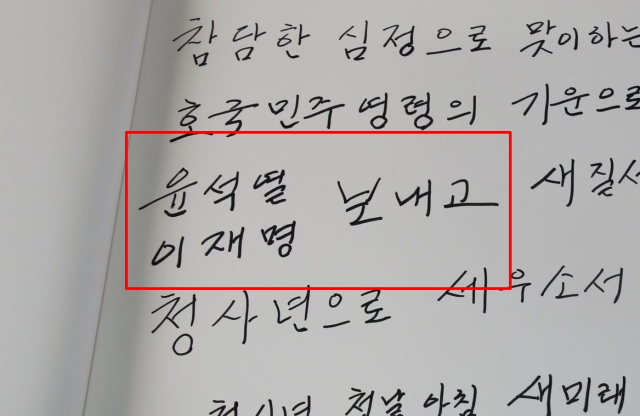 참담한 심정으로 맞이하는
호국민주영령의 기운으로
윤석열 보내고 새질서
이재명
청사년으로 세우소서
청사년 첫날 아침 새미래